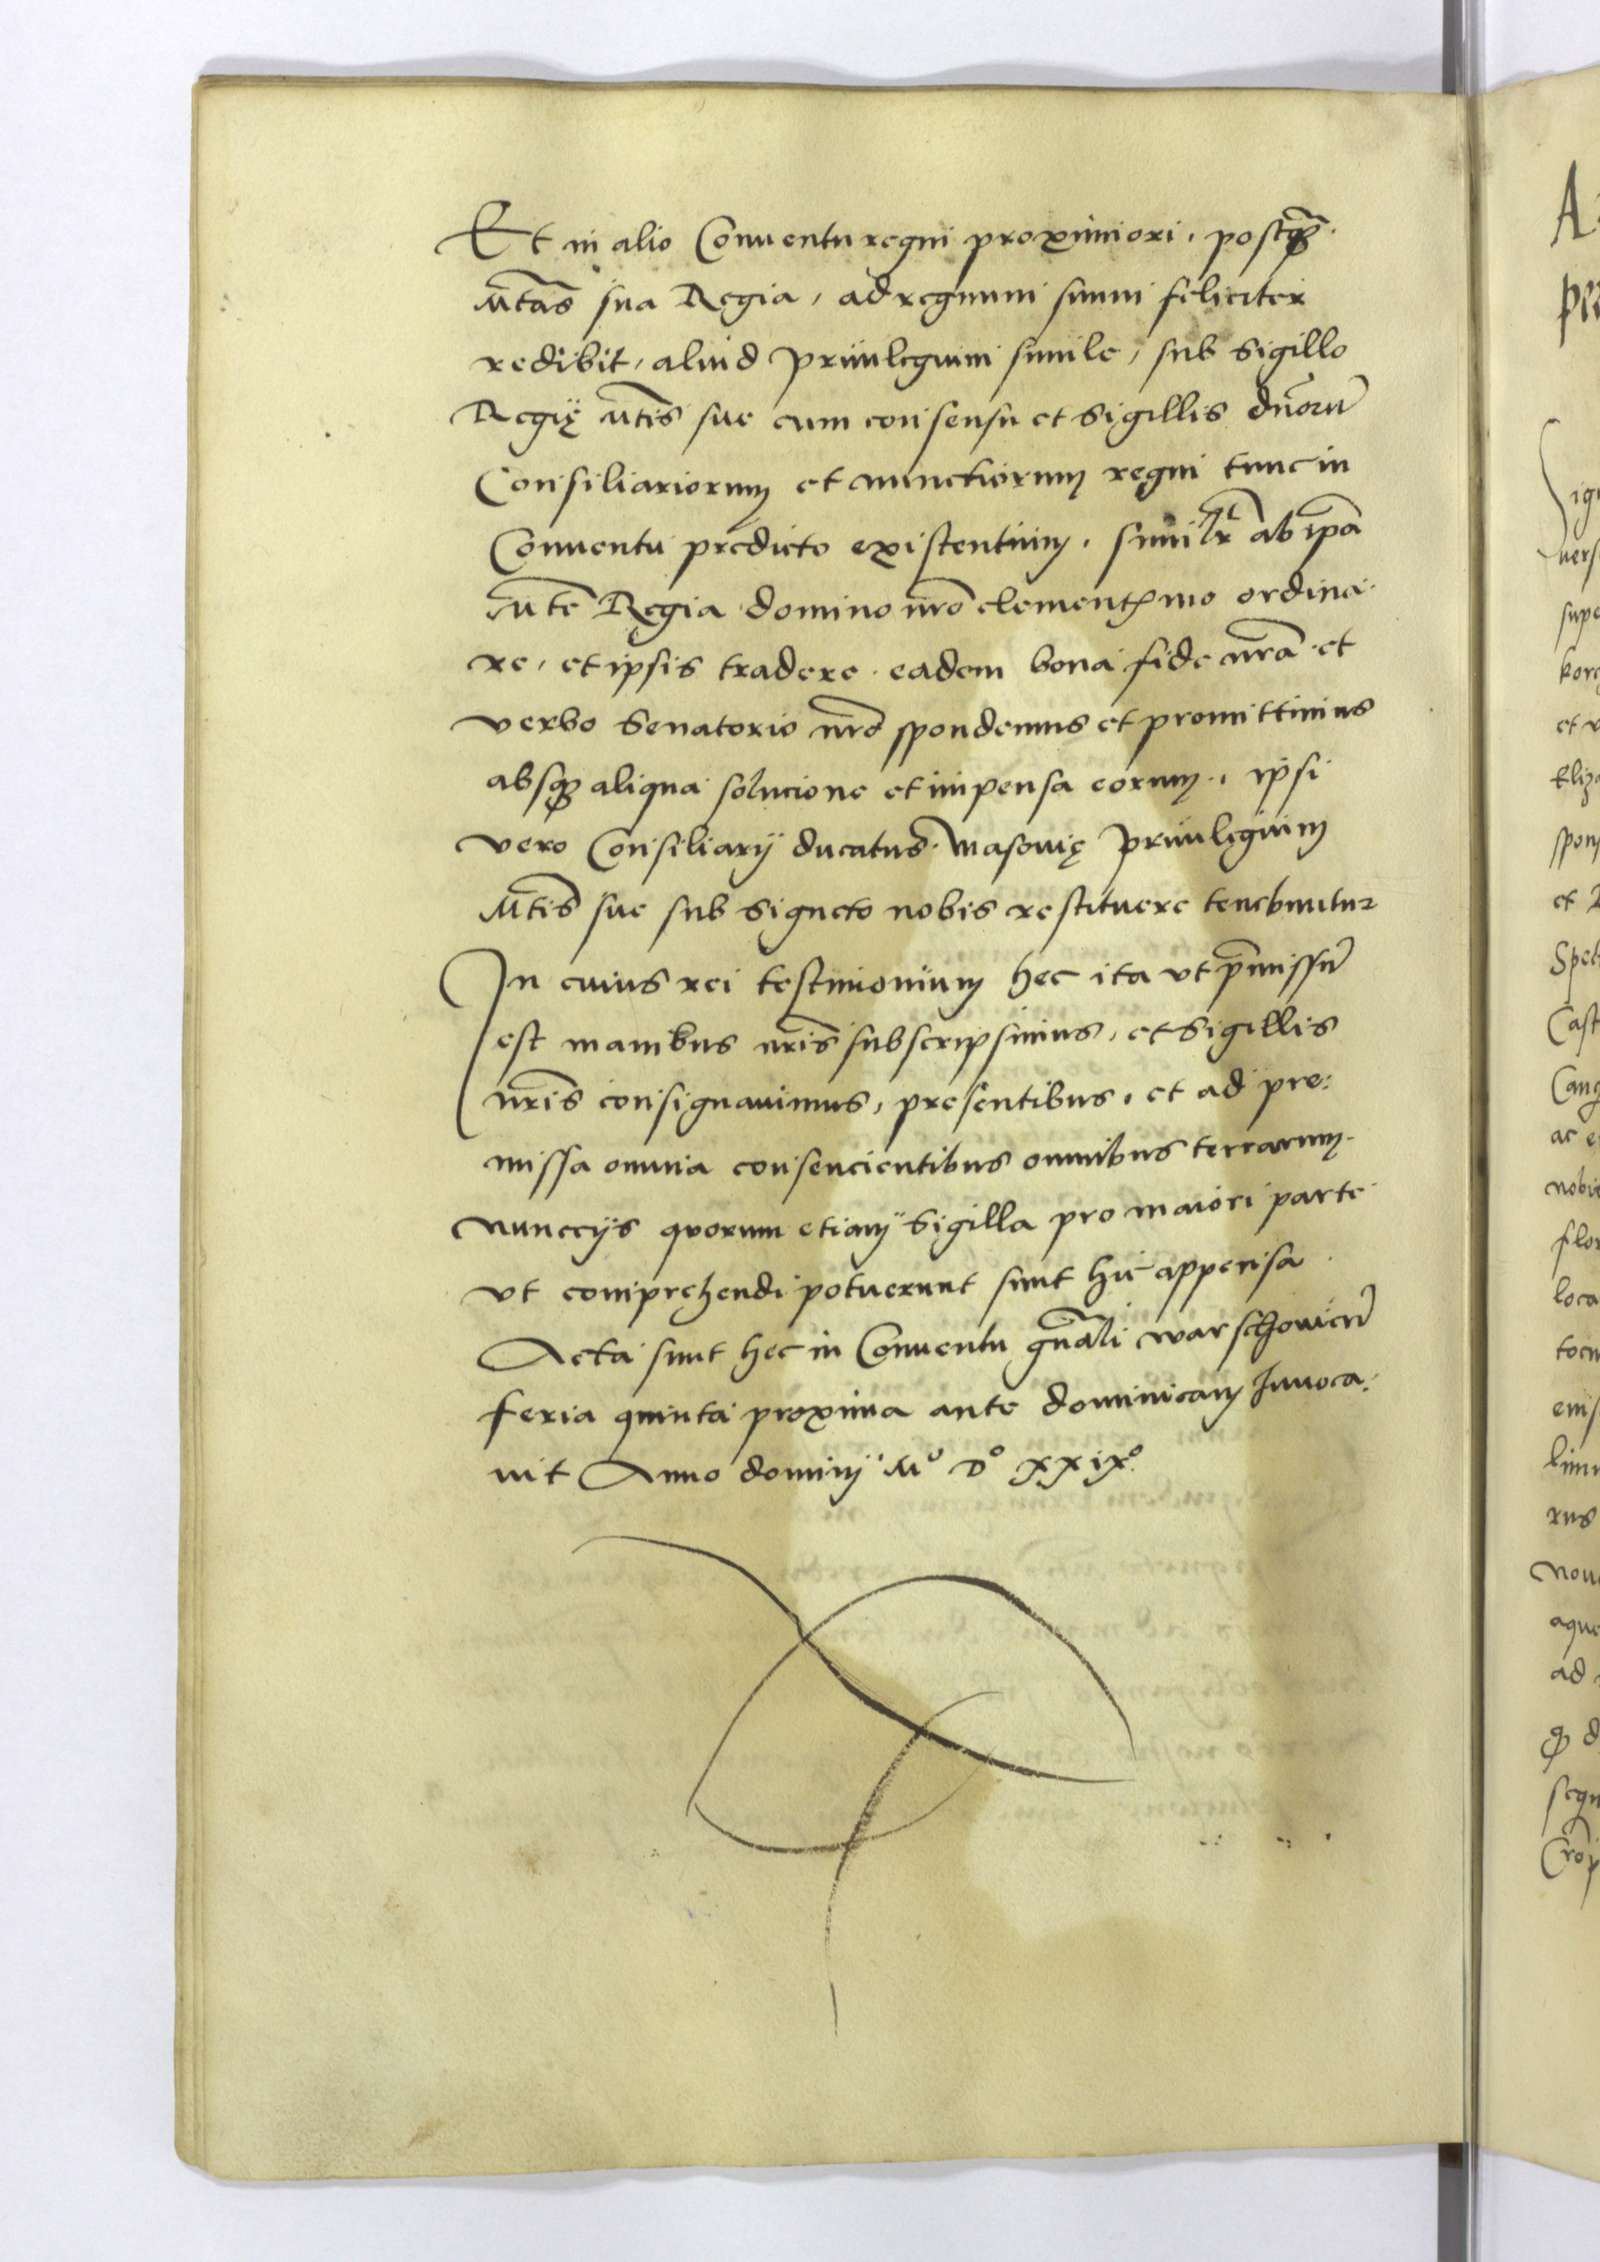 Et in alio Conuentu regni proximiori, postq̃
Mtas sua Regia, ad regnum suum feliciter
redibit, aliud priuilegium simile, sub sigillo
Regię Mtis sue cum consensu et sigillis dnorũ
Consiliariorum et nunctiorum regni tunc in
Conuentu predicto existentium, similr ab ipa
Mte Regia domino nro clementmo ordina
re, et ipsis tradere eadem bona fide nra et
verbo senatorio nro spondemus et promittimus
absq aliqua solucione et impensa eorum, ipsi
vero Consiliarij ducatus Masouię priuilegium
Mtis sue sub signeto nobis restituere tenebuntur
In cuius rei testimonium hec ita vt pmissũ
est manibus nris subscripsimus, et sigillis
nris consignauimus, presentibus, et ad pre:
missa omnia consencientibus omnibus terrarum
nunccijs quorum etiam sigilla pro maiori parte
vt comprehendi potuerunt sunt hic appensa
Acta sunt hec in Conuentu gnali warschouien̄
feria quinta proxima ante dominicam Inuoca:
uit Anno dominj Mo Do xxixo